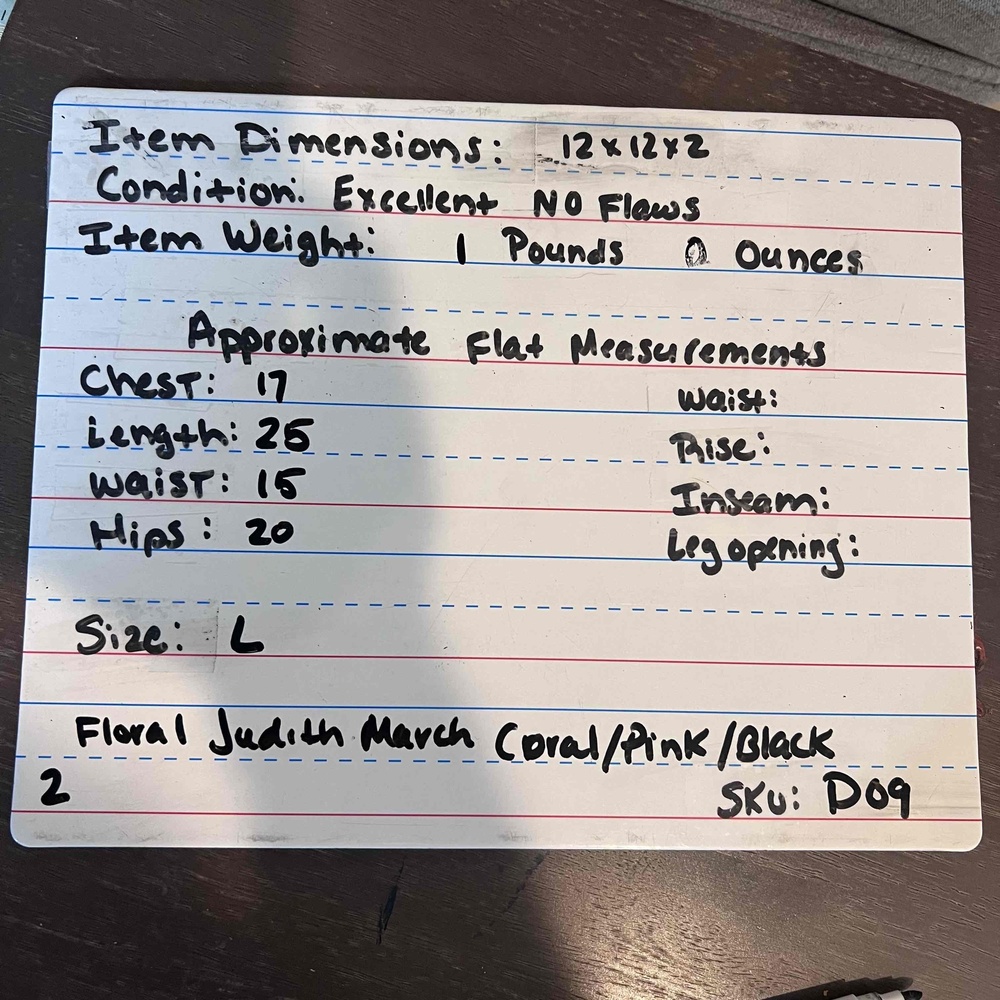 Item Dimensions: 12x12x2
Condition: Excellent NO Flaws
Item Weight: 1 Pounds 0 Ounces
Approximate Flat Measurements
Chest: 17
Waist:
Length: 25
Rise:
Waist: 15
Inseam:
Hips: 20
Leg opening:
Size: L
Floral Judith March Coral/Pink/Black
2
SKU: D09